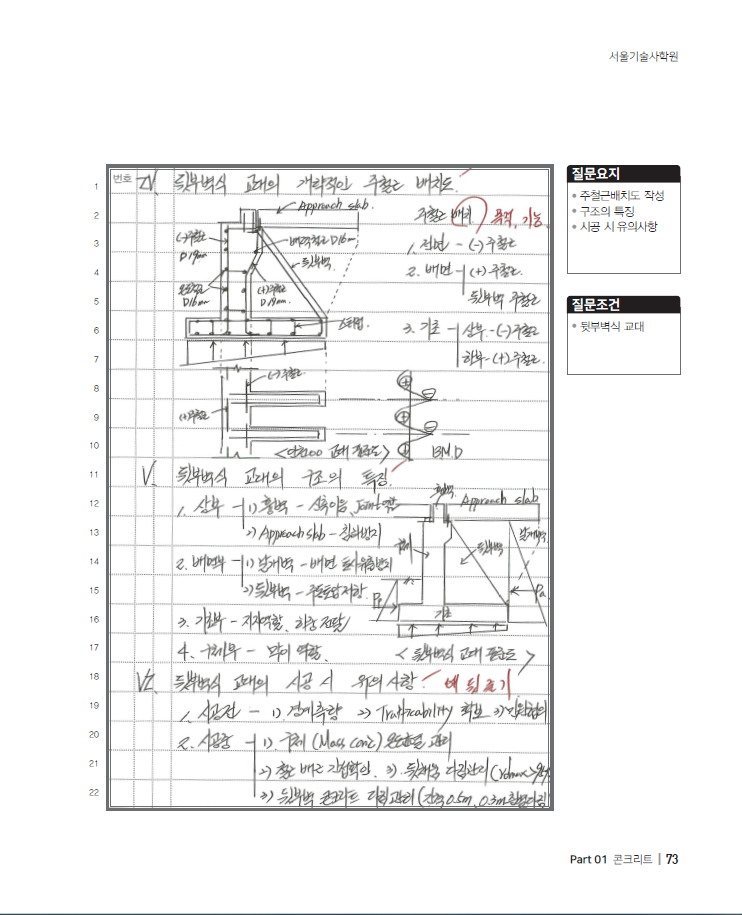 서울기술사학원
번호
Ⅳ. 뒷부벽식 교대의 개략적인 주철근 배치도.
Approach slab.
주철근 배치 목적, 기능
(-)주철근
D19mm
배력철근 D16mm
뒷부벽
1. 전면 - (-)주철근
2. 배면 - (+)주철근
뒷부벽 주철근
D16mm
(+)주철근
D19mm.
3. 기초 - 상부 - (-)주철근
하부 - (+)주철근
(-)주철근
(+)주철근
BMD
Ⅴ. 뒷부벽식 교대의 구조의 특징.
1. 상부 - 1) 흉벽 - 신축이음, Joint 역할
2) Approach slab - 침하방지
흉벽
Approach slab
2. 배면부 - 1) 날개벽 - 배면 토사유출방지
2) 뒷부벽 - 주동토압저항.
뒷부벽
날개벽
Pp
Pa
기초
3. 기초부 - 지지역할, 하중전달
4. 구체부 - 역할.
< 뒷부벽식 교대 >
Ⅵ. 뒷부벽식 교대의 시공 시 유의 사항.
1. 시공전 - 1) 경계측량 2) Trafficability 확보 3) 민원협의
2. 시공중 - 1) 구체 (Mass conc) 관리
2) 철근 배근 간격확인. 3) 뒷채움 다짐관리
3) 뒷부벽 콘크리트 다짐관리 (간격 0.5m, 0.3m
1
2
3
4
5
6
7
8
9
10
11
12
13
14
15
16
17
18
19
20
21
22
질문요지
• 주철근배치도 작성
• 구조의 특징
• 시공 시 유의사항
질문조건
• 뒷부벽식 교대
Part 01 콘크리트 | 73